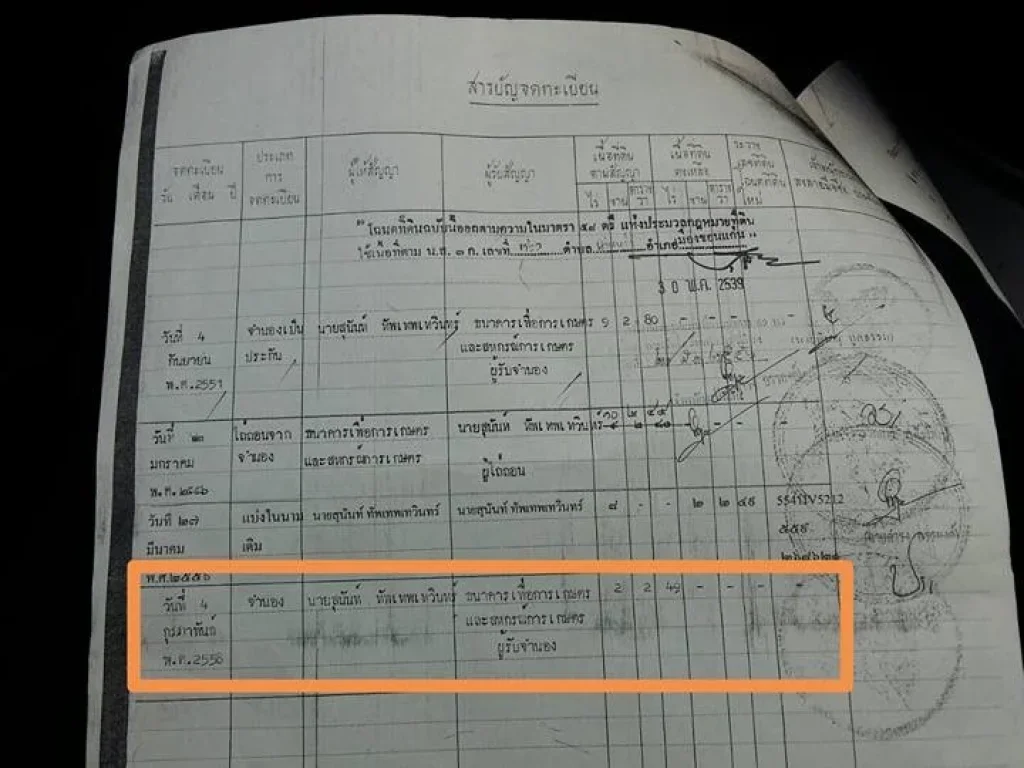 สารบัญจดทะเบียน
จดทะเบียน
วัน เดือน ปี
ประเภท
การ
จดทะเบียน
ผู้ให้สัญญา
ผู้รับสัญญา
เนื้อที่ดิน
ตามสัญญา
ไร่ งาน ตารางวา
เนื้อที่ดิน
คงเหลือ
ไร่ งาน ตารางวา
ระวาง
โฉนดที่ดิน
ใหม่
" โฉนดที่ดินฉบับนี้ออกตามความในมาตรา ๕๘ ตรี แห่งประมวลกฎหมายที่ดิน
ใช้เนื้อที่ตาม น.ส. ๓ ก. เลขที่ ตำบล อำเภอเมืองขอนแก่น "
30 พ.ค. 2539
วันที่ 4
กันยายน
พ.ศ.2551
จำนองเป็น
ประกัน
นายสุนันท์ ทัพเทพเทวินทร์
ธนาคารเพื่อการเกษตร
และสหกรณ์การเกษตร
ผู้รับจำนอง
9 2 80 - - - -
วันที่ ๒๓
มกราคม
พ.ศ.๒๕๕๖
ไถ่ถอนจาก
จำนอง
ธนาคารเพื่อการเกษตร
และสหกรณ์การเกษตร
นายสุนันท์ ทัพเทพเทวินทร์
ผู้ไถ่ถอน
๑๐ ๒ ๔๕
๙ ๒ ๘๐ - - -
วันที่ ๒๗
มีนาคม
พ.ศ.๒๕๕๖
แบ่งในนาม
เดิม
นายสุนันท์ ทัพเทพเทวินทร์
นายสุนันท์ ทัพเทพเทวินทร์
๘ - - ๒ ๒ ๔๙
5541IV5212
วันที่ 4
กุมภาพันธ์
พ.ศ.2558
จำนอง
นายสุนันท์ ทัพเทพเทวินทร์
ธนาคารเพื่อการเกษตร
และสหกรณ์การเกษตร
ผู้รับจำนอง
2 2 49 - - - -